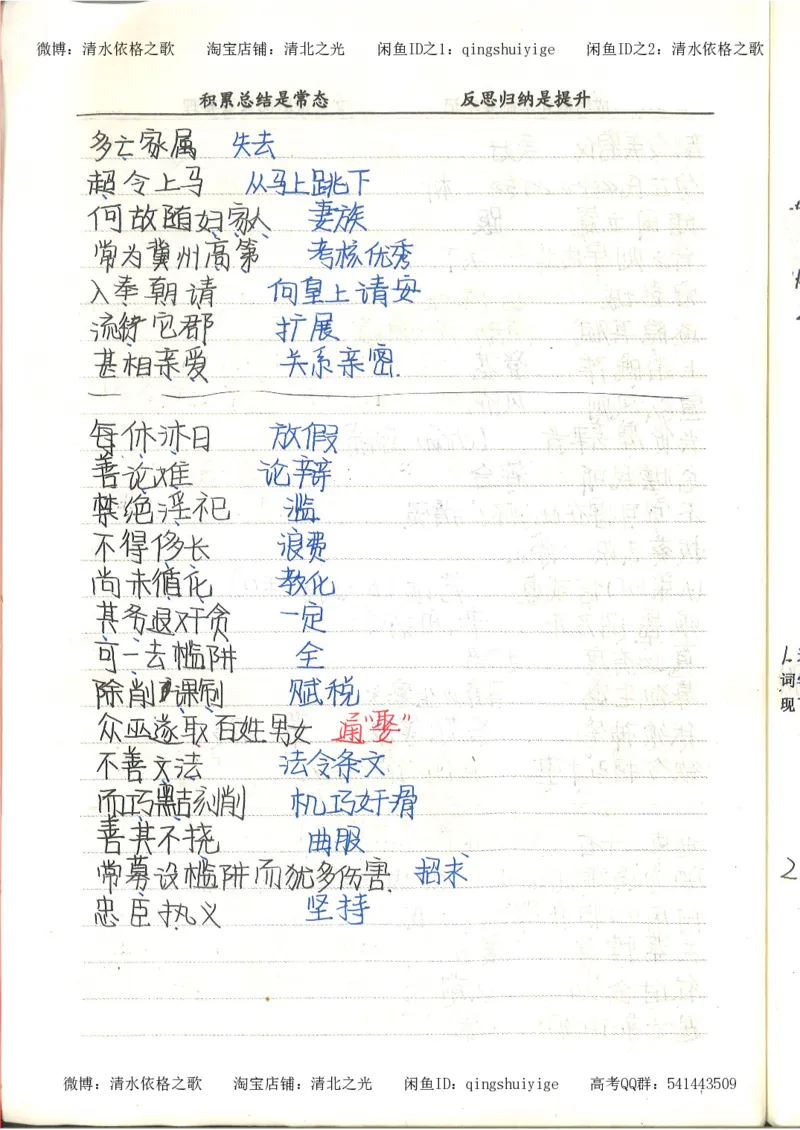 微博：清水依格之歌 淘宝店铺：清北之光 闲鱼ID之1：qingshuiyige 闲鱼ID之2：清水依格之歌
积累总结是常态 反思归纳是提升
多亡家属 失去
超令上马 从马上跳下
何故随妇家人 妻族
常为冀州高第 考核优秀
入奉朝请 向皇上请安
流衍它郡 扩展
甚相亲爱 关系亲密.
每休沐日 放假
善论难 论辩
禁绝淫祀 滥
不得侈长 浪费
尚未循化 教化
其务退奸贪 一定
可一去槛阱 全
除削课制 赋税
众巫遂取百姓男女 通"娶"
不善文法 法令条文
而巧黠刻削 机巧奸滑
善其不挠 曲服
常募设槛阱而犹多伤害 招求
忠臣执义 坚持
1.
词
现
2
微博：清水依格之歌 淘宝店铺：清北之光 闲鱼ID：qingshuiyige 高考QQ群：541443509